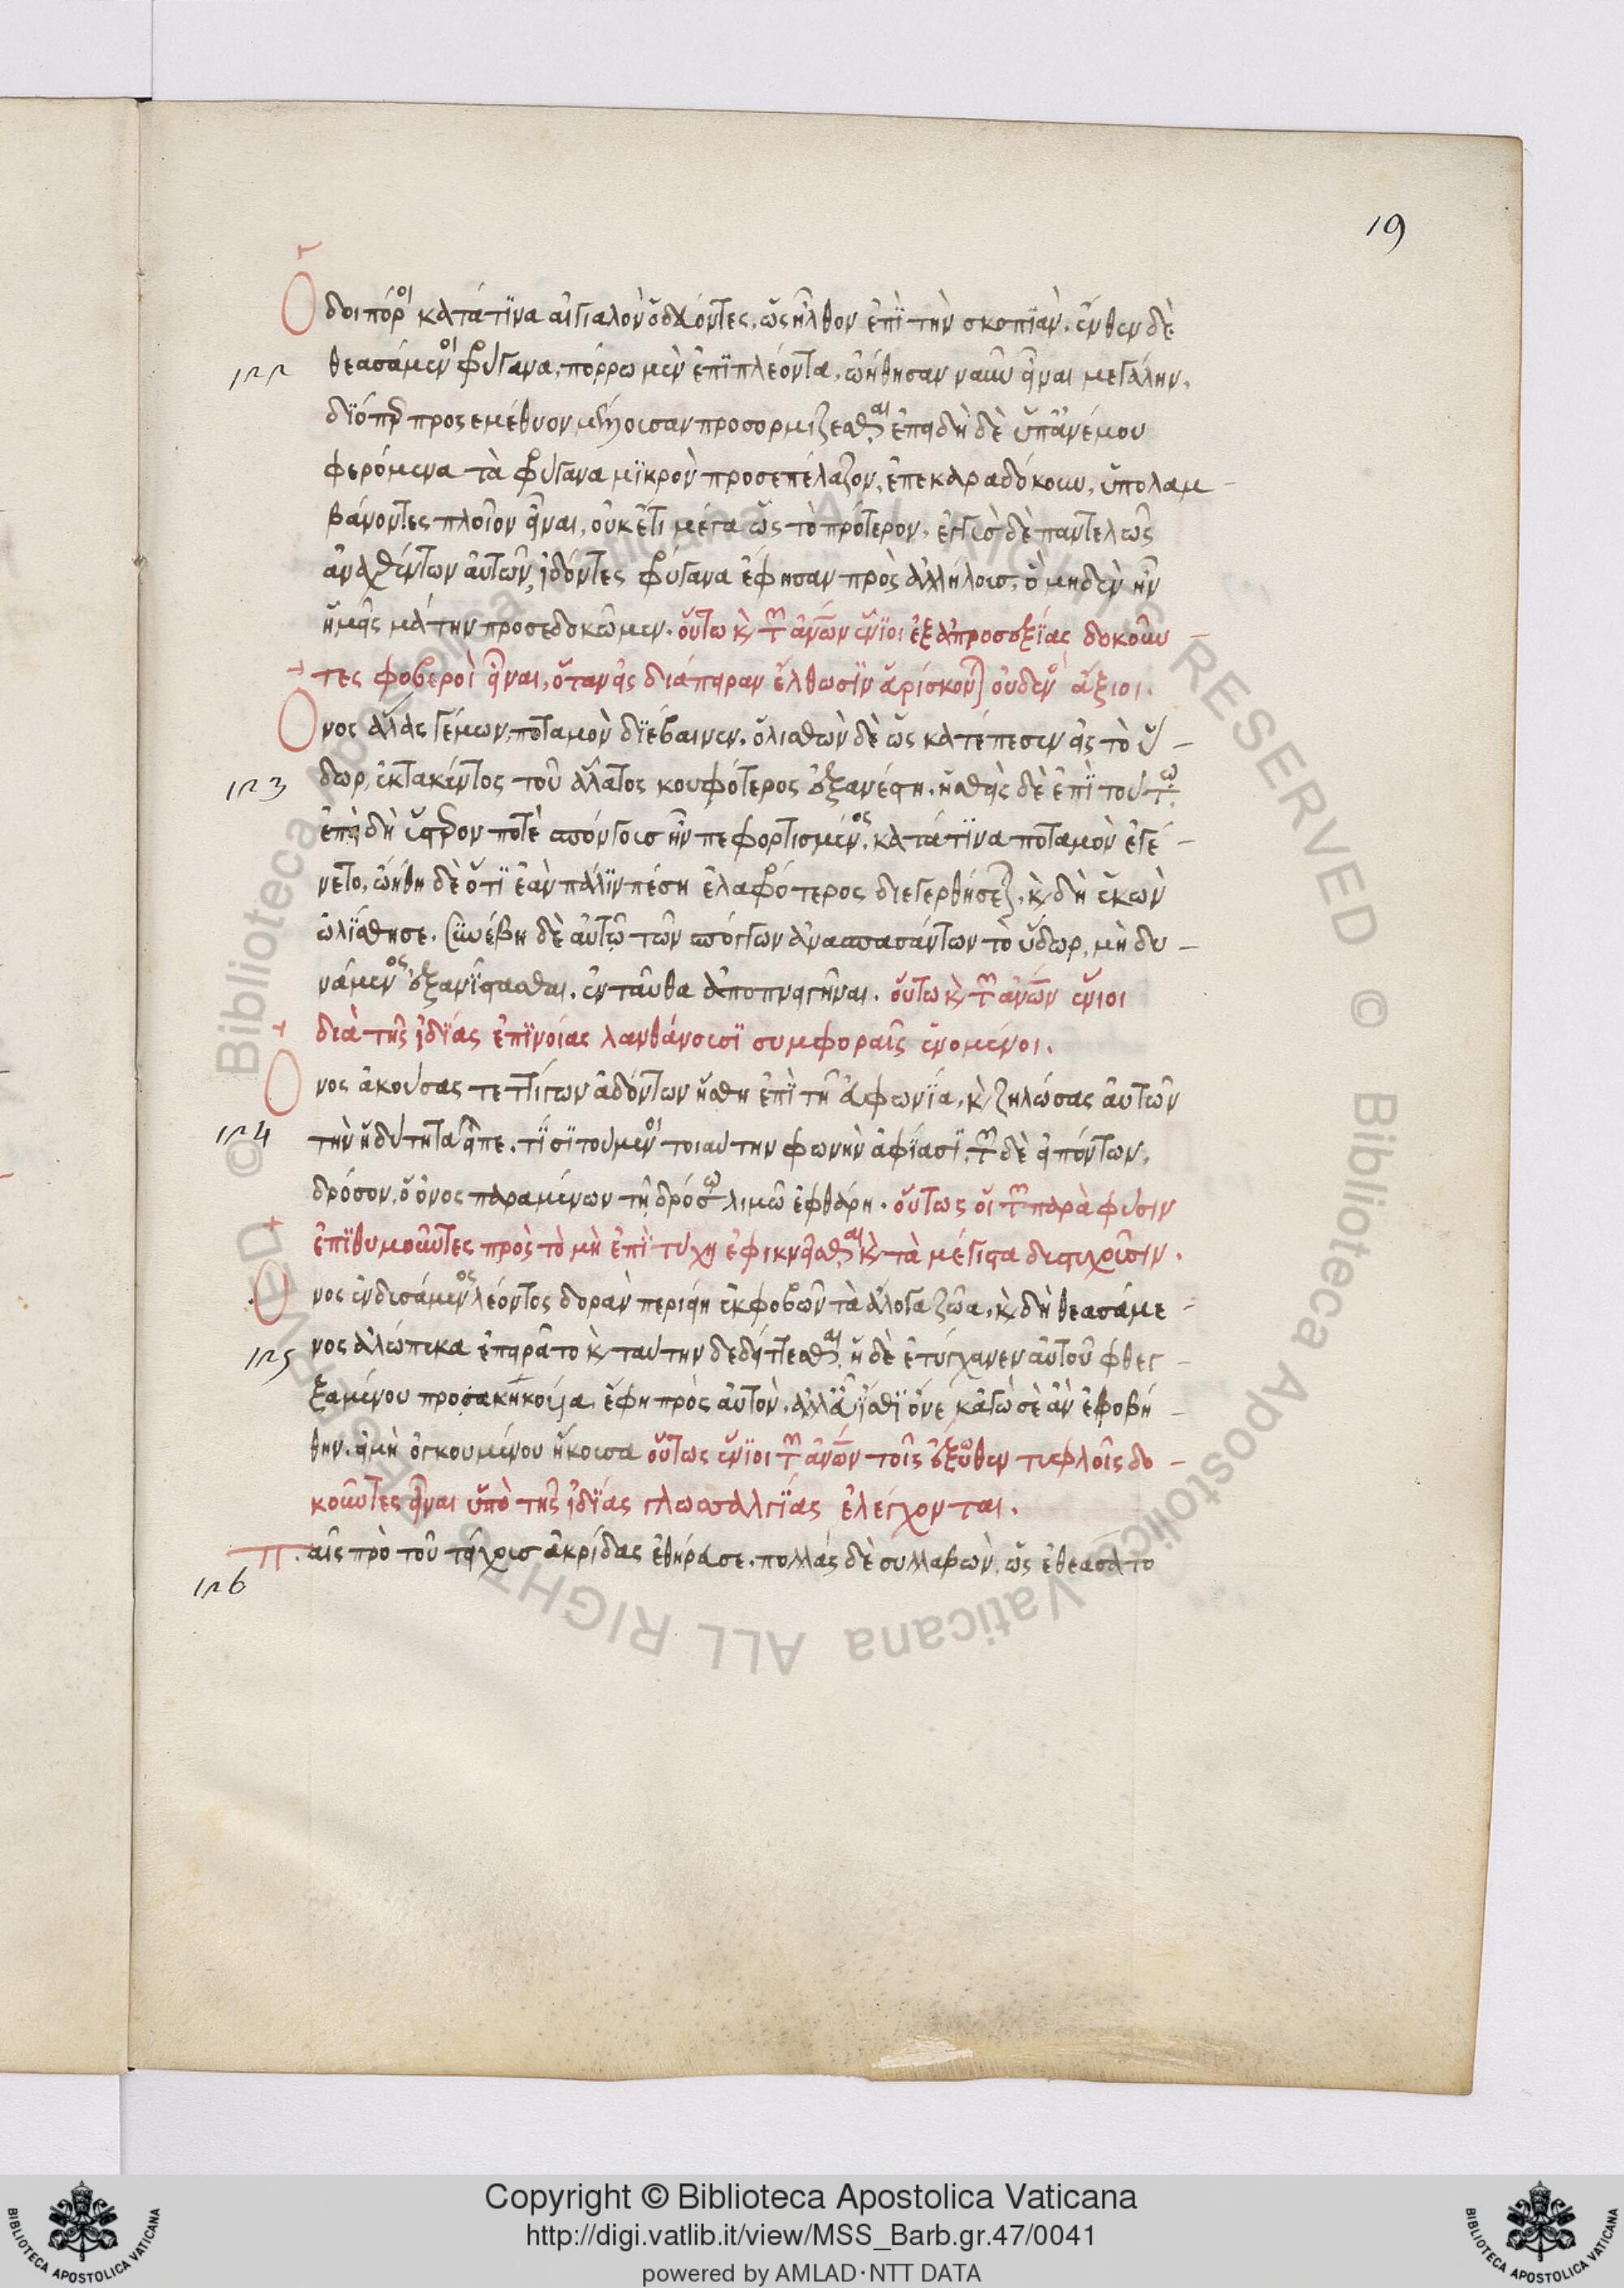 19
Ὁδοιπόροι κατά τινα αἰγιαλὸν ὁδεύοντες, ὡς ἦλθον ἐπὶ τὴν σκοπιὰν, ἔνθεν δὲ
122
θεασάμενοι φρύγανα, πόρρω μὲν ἐπιπλέοντα, ᾠήθησαν ναῦν εἶναι μεγάλην,
διόπερ προσέμενον μέλλουσαν προσορμίζεσθαι, ἐπειδὴ δὲ ὑπ' ἀνέμου
φερόμενα τὰ φρύγανα μικρὸν προσεπέλαζον, ἐπεκαραδόκουν, ὑπολαμ-
βάνοντες πλοῖον εἶναι, οὐκέτι μέγα ὡς τὸ πρότερον, ἐγγὺς δὲ παντελῶς
αὐτῶν, ἰδόντες φρύγανα ἔφησαν πρὸς ἀλλήλους, ὁ μηδὲν ἦν
ἡμεῖς μάτην προσεδοκῶμεν. οὕτω καὶ τῶν ἀνθρώπων ἔνιοι ἐξ ἀπροσδοκίας δοκοῦν-
τες φοβεροὶ εἶναι, ὅταν εἰς διάπειραν ἔλθωσιν εὑρίσκονται οὐδενὸς ἄξιοι.
Ὄνος ἅλας γέμων, ποταμὸν διέβαινεν, ὀλισθὼν δὲ ὡς κατέπεσεν εἰς τὸ ὕ-
123
δωρ, ἐκτακέντος τοῦ ἅλατος κουφότερος ἐξανέστη. ἡσθεὶς δὲ ἐπὶ τούτῳ
ἐπειδὴ ὕστερον ποτὲ σπόγγοις ἦν πεφορτισμένος, κατά τινα ποταμὸν ἐγέ-
νετο, ᾠήθη δὲ ὅτι ἐὰν πάλιν πέσῃ ἐλαφρότερος διεγερθήσεται, καὶ δὴ ἑκὼν
ὠλίσθησε. συνέβη δὲ αὐτῷ τῶν σπόγγων ἀνασπασάντων τὸ ὕδωρ, μὴ δυ-
νάμενος ἐξανίστασθαι, ἐνταῦθα ἀποπνιγῆναι. οὕτω καὶ τῶν ἀνθρώπων ἔνιοι
διὰ τῆς ἰδίας ἐπινοίας λανθάνουσι συμφοραῖς ἐνομένοι.
Ὄνος ἀκούσας τεττίγων ἀδόντων ἥσθη ἐπὶ τῇ ἀφωνία, καὶ ζηλώσας αὐτῶν
124
τὴν ἡδύτητα εἶπε, τί σιτούμενοι τοιαύτην φωνὴν ἀφίασι, τῶν δὲ εἰπόντων,
δρόσον, ὁ ὄνος παραμένων τῇ δρόσῳ λιμῷ ἐφθάρη. οὕτως οἱ τῶν παρὰ φύσιν
ἐπιθυμοῦντες πρὸς τὸ μὴ ἐπὶ τύχῃ ἐφικνεῖσθαι καὶ τὰ μέγιστα δυστυχοῦσιν.
Ὄνος ἐνδυσάμενος λέοντος δορὰν περιῄει ἐκφοβῶν τὰ ἄλογα ζῶα, καὶ δὴ θεασάμε-
125
νος ἀλώπεκα ἐπειρᾶτο καὶ ταύτην δεδίττεσθαι, ἡ δὲ ἐτύγχανεν αὐτοῦ φθεγ-
ξαμένου προσακηκούῖα, ἔφη πρὸς αὐτὸν, ἀλλ' εὖ ἴσθι ὄνε κἀγὼ σὲ ἂν ἐφοβή-
θην, εἰ μὴ ὀγκουμένου ἤκουσα οὕτως ἔνιοι τῶν ἀνθρώπων τοῖς ἔξωθεν τυφλοῖς δο-
κοῦντες εἶναι ὑπὸ τῆς ἰδίας γλωσσαλγίας ἐλέγχονται.
Παῖς πρὸ τοῦ τείχους ἀκρίδας ἐθήρασε. πολλὰς δὲ συλλαβὼν, ὡς ἐθεάσατο
126
Copyright © Biblioteca Apostolica Vaticana
http://digi.vatlib.it/view/MSS_Barb.gr.47/0041
powered by AMLAD·NTT DATA
BIBLIOTECA APOSTOLICA VATICANA
BIBLIOTECA APOSTOLICA VATICANA